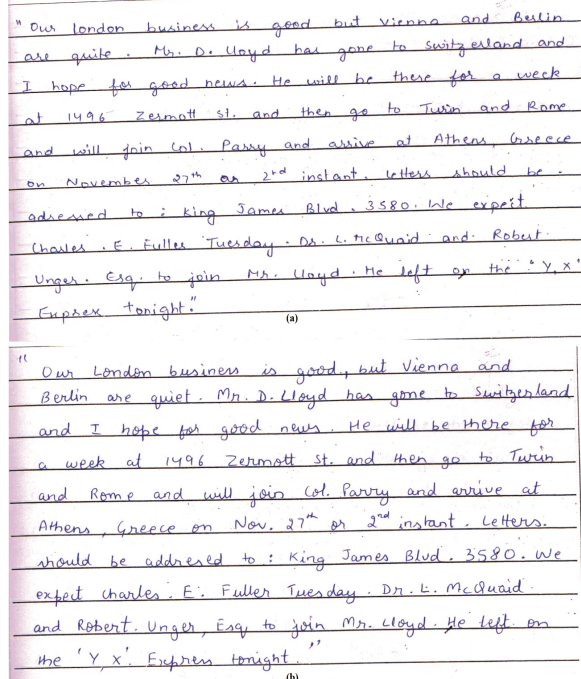 "Our london business is good but Vienna and Berlin
are quite. Mr. D. Lloyd has gone to switzerland and
I hope for good news. He will be there for a week
at 1496 Zermott st. and then go to Turin and Rome
and will join Col. Parry and arrive at Athens, Greece
on November 27th or 2nd instant. letters should be.
adressed to : King James Blvd. 3580. We expect
Charles. E. Fuller Tuesday. Dr. L. McQuaid and. Robert.
Unger. Esq. to join Mr. Lloyd. He left on the 'Y, X'
Exprex tonight."
(a)
" Our London business is good, but Vienna and
Berlin are quiet. Mr. D. Lloyd has gone to Switzerland
and I hope for good news. He will be there for
a week at 1496 Zermott St. and then go to Turin
and Rome and will join Col. Parry and arrive at
Athens, Greece on Nov. 27th or 2nd instant. Letters.
should be addresed to : King James Blvd. 3580. We
expect Charles. E. Fuller Tuesday. Dr. L. McQuaid.
and Robert. Unger, Esq. to join Mr. Lloyd. He left on
the 'Y, X'. Express tonight."
(b)